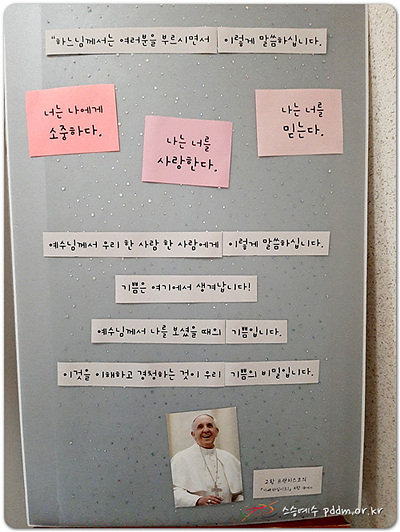 "하느님께서는 여러분을 부르시면서 이렇게 말씀하십니다.
너는 나에게
소중하다.
나는 너를
사랑한다.
나는 너를
믿는다.
예수님께서 우리 한 사람 한 사람에게 이렇게 말씀하십니다.
기쁨은 여기에서 생겨납니다!
예수님께서 나를 보셨을 때의 기쁨입니다.
이것을 이해하고 경청하는 것이 우리 기쁨의 비밀입니다.
교황 프란치스코의
스승예수 pddm.or.kr